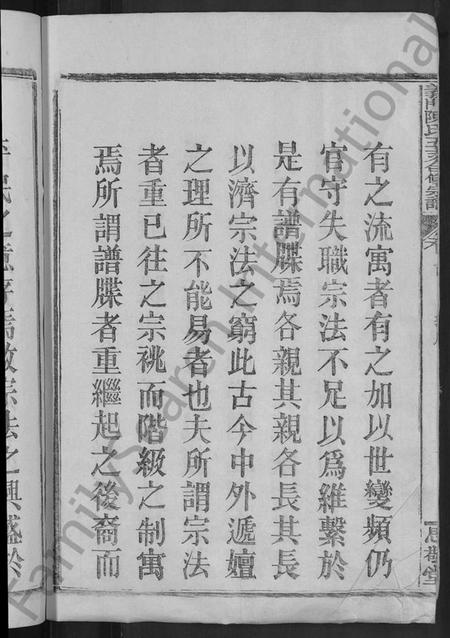 有之流寓者有之加以世變頻仍
官守失職宗法不足以爲維繫於
是有譜牒焉各親其親各長其長
以濟宗法之窮此古今中外遞嬗
之理所不能易者也夫所謂宗法
者重已往之宗祧而階級之制寓
焉所謂譜牒者重繼起之後裔而
義門陳氏
宗譜
FamilySearch International